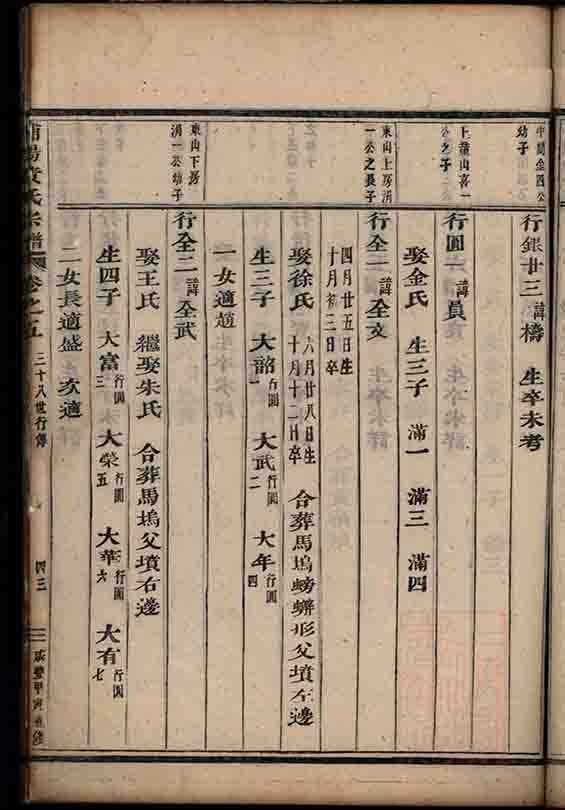 中間金四公
幼子
行銀廿三 諱檮 生卒未考
上蕭山喜一
公之子
行圓一 諱員
娶金氏 生三子 滿一 滿三 滿四
東山上房涓
一公之長子
行全一 諱全文
四月廿五日生
十月初三日卒
娶徐氏 六月廿八日生 十月十二日卒 合葬馬塢螃蠏形父墳左邊
生三子 大韶行圓一 大武行圓二 大年行圓四
一女適趙
東山下房
涓一公幼子
行全二 諱全武
娶王氏 繼娶朱氏 合葬馬塢父墳右邊
生四子 大富行圓三 大榮行圓五 大華行圓六 大有行圓七
二女長適盛 次適
氏宗譜 卷之五 三十八世行傳 四三 咸豐甲寅重修